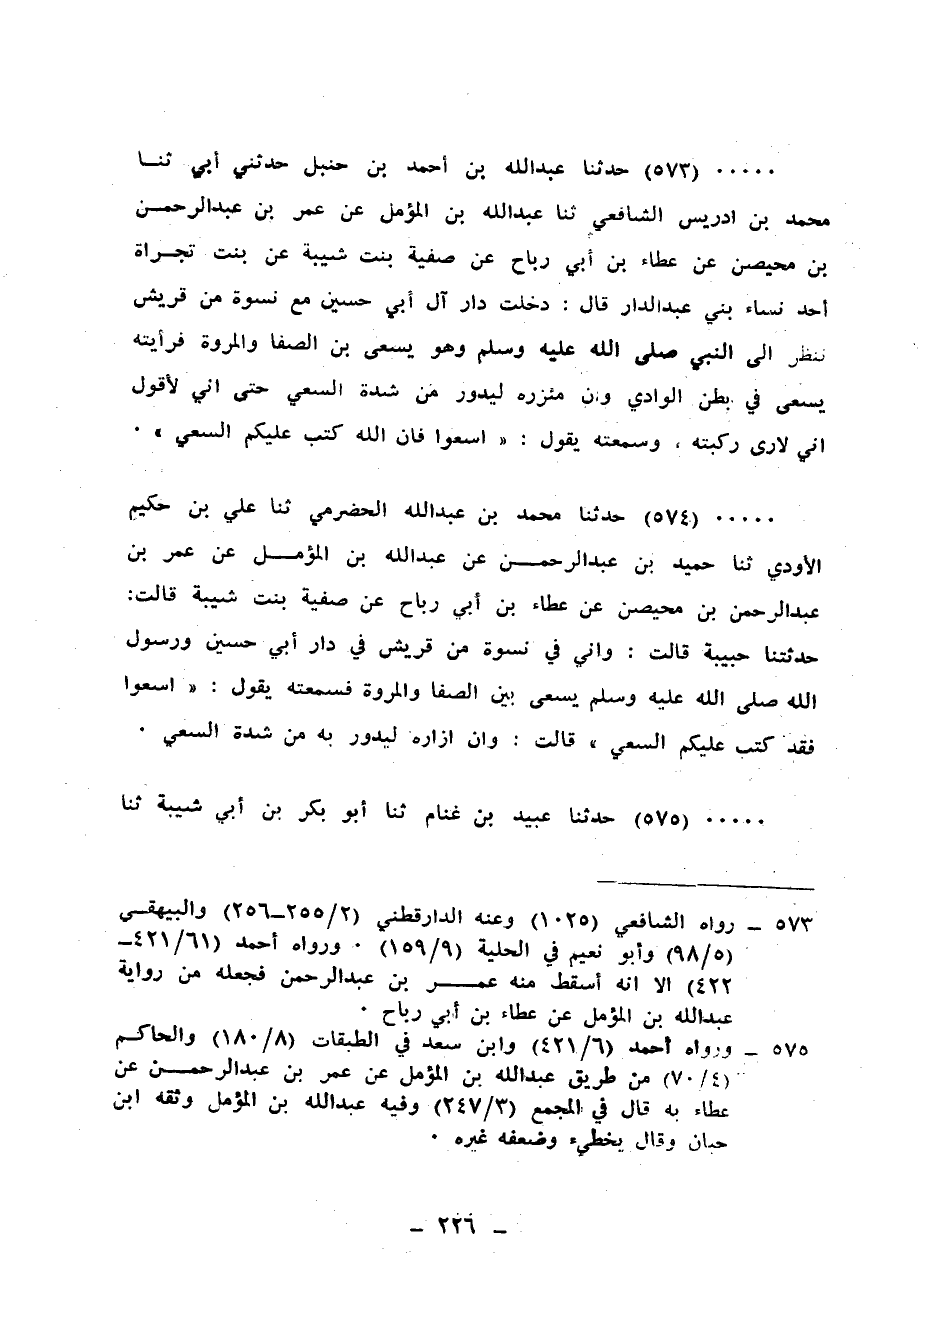 ٠٠٠٠٠ (٥٧٣) حدثنا عبدالله بن أحمد بن حنبل حدثني أبي ثنا
محمد بن ادريس الشافعي ثنا عبدالله بن المؤمل عن عمر بن عبدالرحمن
بن محيصن عن عطاء بن أبي رباح عن صفية بنت شيبة عن بنت تجراة
أحد نساء بني عبدالدار قال : دخلت دار آل أبي حسين مع نسوة من قريش
ننظر الى النبي صلى الله عليه وسلم وهو يسعى بن الصفا والمروة فرأيته
يسعى في بطن الوادي وان مئزره ليدور من شدة السعي حتى اني لأقول
اني لارى ركبته ، وسمعته يقول : « اسعوا فان الله كتب عليكم السعي » ٠
٠٠٠٠٠ (٥٧٤) حدثنا محمد بن عبدالله الحضرمي ثنا علي بن حكيم
الأودي ثنا حميد بن عبدالرحمن عن عبدالله بن المؤمل عن عمر بن
عبدالرحمن بن محيصن عن عطاء بن أبي رباح عن صفية بنت شيبة قالت:
حدثتنا حبيبة قالت : واني في نسوة من قريش في دار أبي حسين ورسول
الله صلى الله عليه وسلم يسعى بين الصفا والمروة فسمعته يقول : « اسعوا
فقد كتب عليكم السعي » قالت : وان ازاره ليدور به من شدة السعي ٠
٠٠٠٠٠ (٥٧٥) حدثنا عبيد بن غنام ثنا أبو بكر بن أبي شيبة ثنا
٥٧٣ ـ رواه الشافعي (١٠٢٥) وعنه الدارقطني (٢/٢٥٥ـ٢٥٦) والبيهقي
(٩٨/٥) وأبو نعيم في الحلية (١٥٩/٩) ٠ ورواه أحمد (٤٢١/٦١ـ
٤٢٢) الا انه أسقط منه عمر بن عبدالرحمن فجعله من رواية
عبدالله بن المؤمل عن عطاء بن أبي رباح ٠
٥٧٥ ـ ورواه أحمد (٤٢١/٦) وابن سعد في الطبقات (١٨٠/٨) والحاكم
(٧٠/٤) من طريق عبدالله بن المؤمل عن عمر بن عبدالرحمن عن
عطاء به قال في المجمع (٢٤٧/٣) وفيه عبدالله بن المؤمل وثقه ابن
حبان وقال يخطيء وضعفه غيره ٠
ـ ٢٢٦ ـ